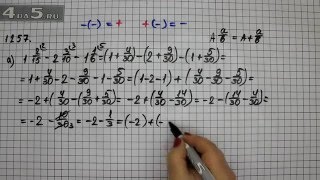 -(-) = + +(-) = -
1257. A a/b = A + a/b
а) 1 2/15 - 2 3/10 - 1 1/6 = (1 + 4/30) - (2 + 9/30) - (1 + 5/30) =
= 1 + 4/30 - 2 - 9/30 - 1 - 5/30 = (1 - 2 - 1) + (4/30 - 9/30 - 5/30) =
= -2 + (4/30 - (9/30 + 5/30)) = -2 + (4/30 - 14/30) = -2 - (14/30 - 4/30) =
= -2 - 10/30 3 = -2 - 1/3 = (-2) + (-